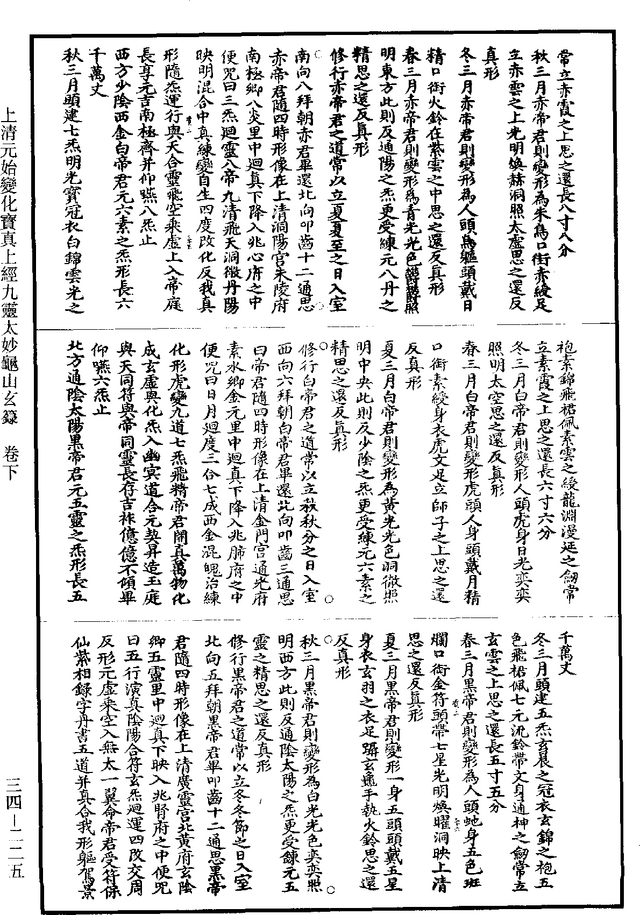 常立赤霞之上思之還長八寸八分
秋三月赤帝君則變形為朱鳥口銜赤綬足
立赤雲之上光明煥赫洞照太虛思之還反
真形
冬三月赤帝君則變形為人頭鳥軀頭戴日
精口銜火鈴在紫雲之中思之還反真形
春三月赤帝君則變形為青光光色
明東方此則反通陽之炁更受練元八丹之
精思之還反真形
修行赤帝君之道常以立夏夏至之日入室
南向八拜朝赤君畢還北向叩齒十二通思
赤帝君隨四時形像在上清洞陽宮朱陵府
南極鄉八炎里中迴真下降入兆心府之中
便咒曰三炁迴靈八帝九清飛天洞微丹陽
映明混合中真練變自生四度改化反我真
形隨炁運行與天合靈飛空乘虛上入帝庭
長享元吉南極齊并仰嚥八炁止
西方少陰西金白帝君元六素之炁形長六
千萬丈
秋三月頭建七炁明光寶冠衣白錦雲光之
袍素錦飛裙佩素雲之綬龍淵漫延之劒常
立素霞之上思之還長六寸六分
冬三月白帝君則變形人頭虎身日光奕奕
照明太空思之還反真形
春三月白帝君則變形虎頭人身頭戴月精
口銜素綬身衣虎文足立師子之上思之還
反真形
夏三月白帝君則變形為黃光光色洞微照
明中央此則反少陰之炁更受練元六素之
精思之還反真形
修行白帝君之道常以立秋秋分之日入室
西向六拜朝白帝君畢還北向叩齒三通思
白帝君隨四時形像在上清金門宮通光府
素水鄉金元里中迴真下降入兆肺府之中
便咒曰日月迴度三合七成西金混魄治練
化形虎變九道七炁飛精帝君開真萬物化
成玄虛與化炁入幽冥道合元契昇造玉庭
與天同符與帝同靈長存吉祚億億不傾畢
仰嚥六炁止
北方通陰太陽黑帝君元五靈之炁形長五
千萬丈
冬三月頭建五炁玄晨之冠衣玄錦之袍五
色飛裙佩七元流鈴帶文身通神之劒常立
玄雲之上思之還長五寸五分
春三月黑帝君則變形為人頭虵身五色班
斕口銜金符頭帶七星光明煥曜洞映上清
思之還反真形
夏三月黑帝君則變形一身五頭頭戴五星
身衣玄羽之衣足躡玄龜手執火鈴思之還
反真形
秋三月黑帝君則變形為白光光色奕奕照
明西方此則反通陰太陽之炁更受鍊元五
靈之精思之還反真形
修行黑帝君之道常以立冬冬節之日入室
北向五拜朝黑帝君畢叩齒十二通思黑帝
君隨四時形像在上清廣靈宮北黃府玄陰
鄉五靈里中迴真下映入兆腎府之中便咒
曰五行演真陰陽合符玄炁迴運四改交周
反形元虛乘空入無太一翼命帝君受符保
仙紫相錄字丹書五道并真合我形軀駕景
上清元始變化寶真上經九靈太妙龜山玄籙　卷下
三四－二二五